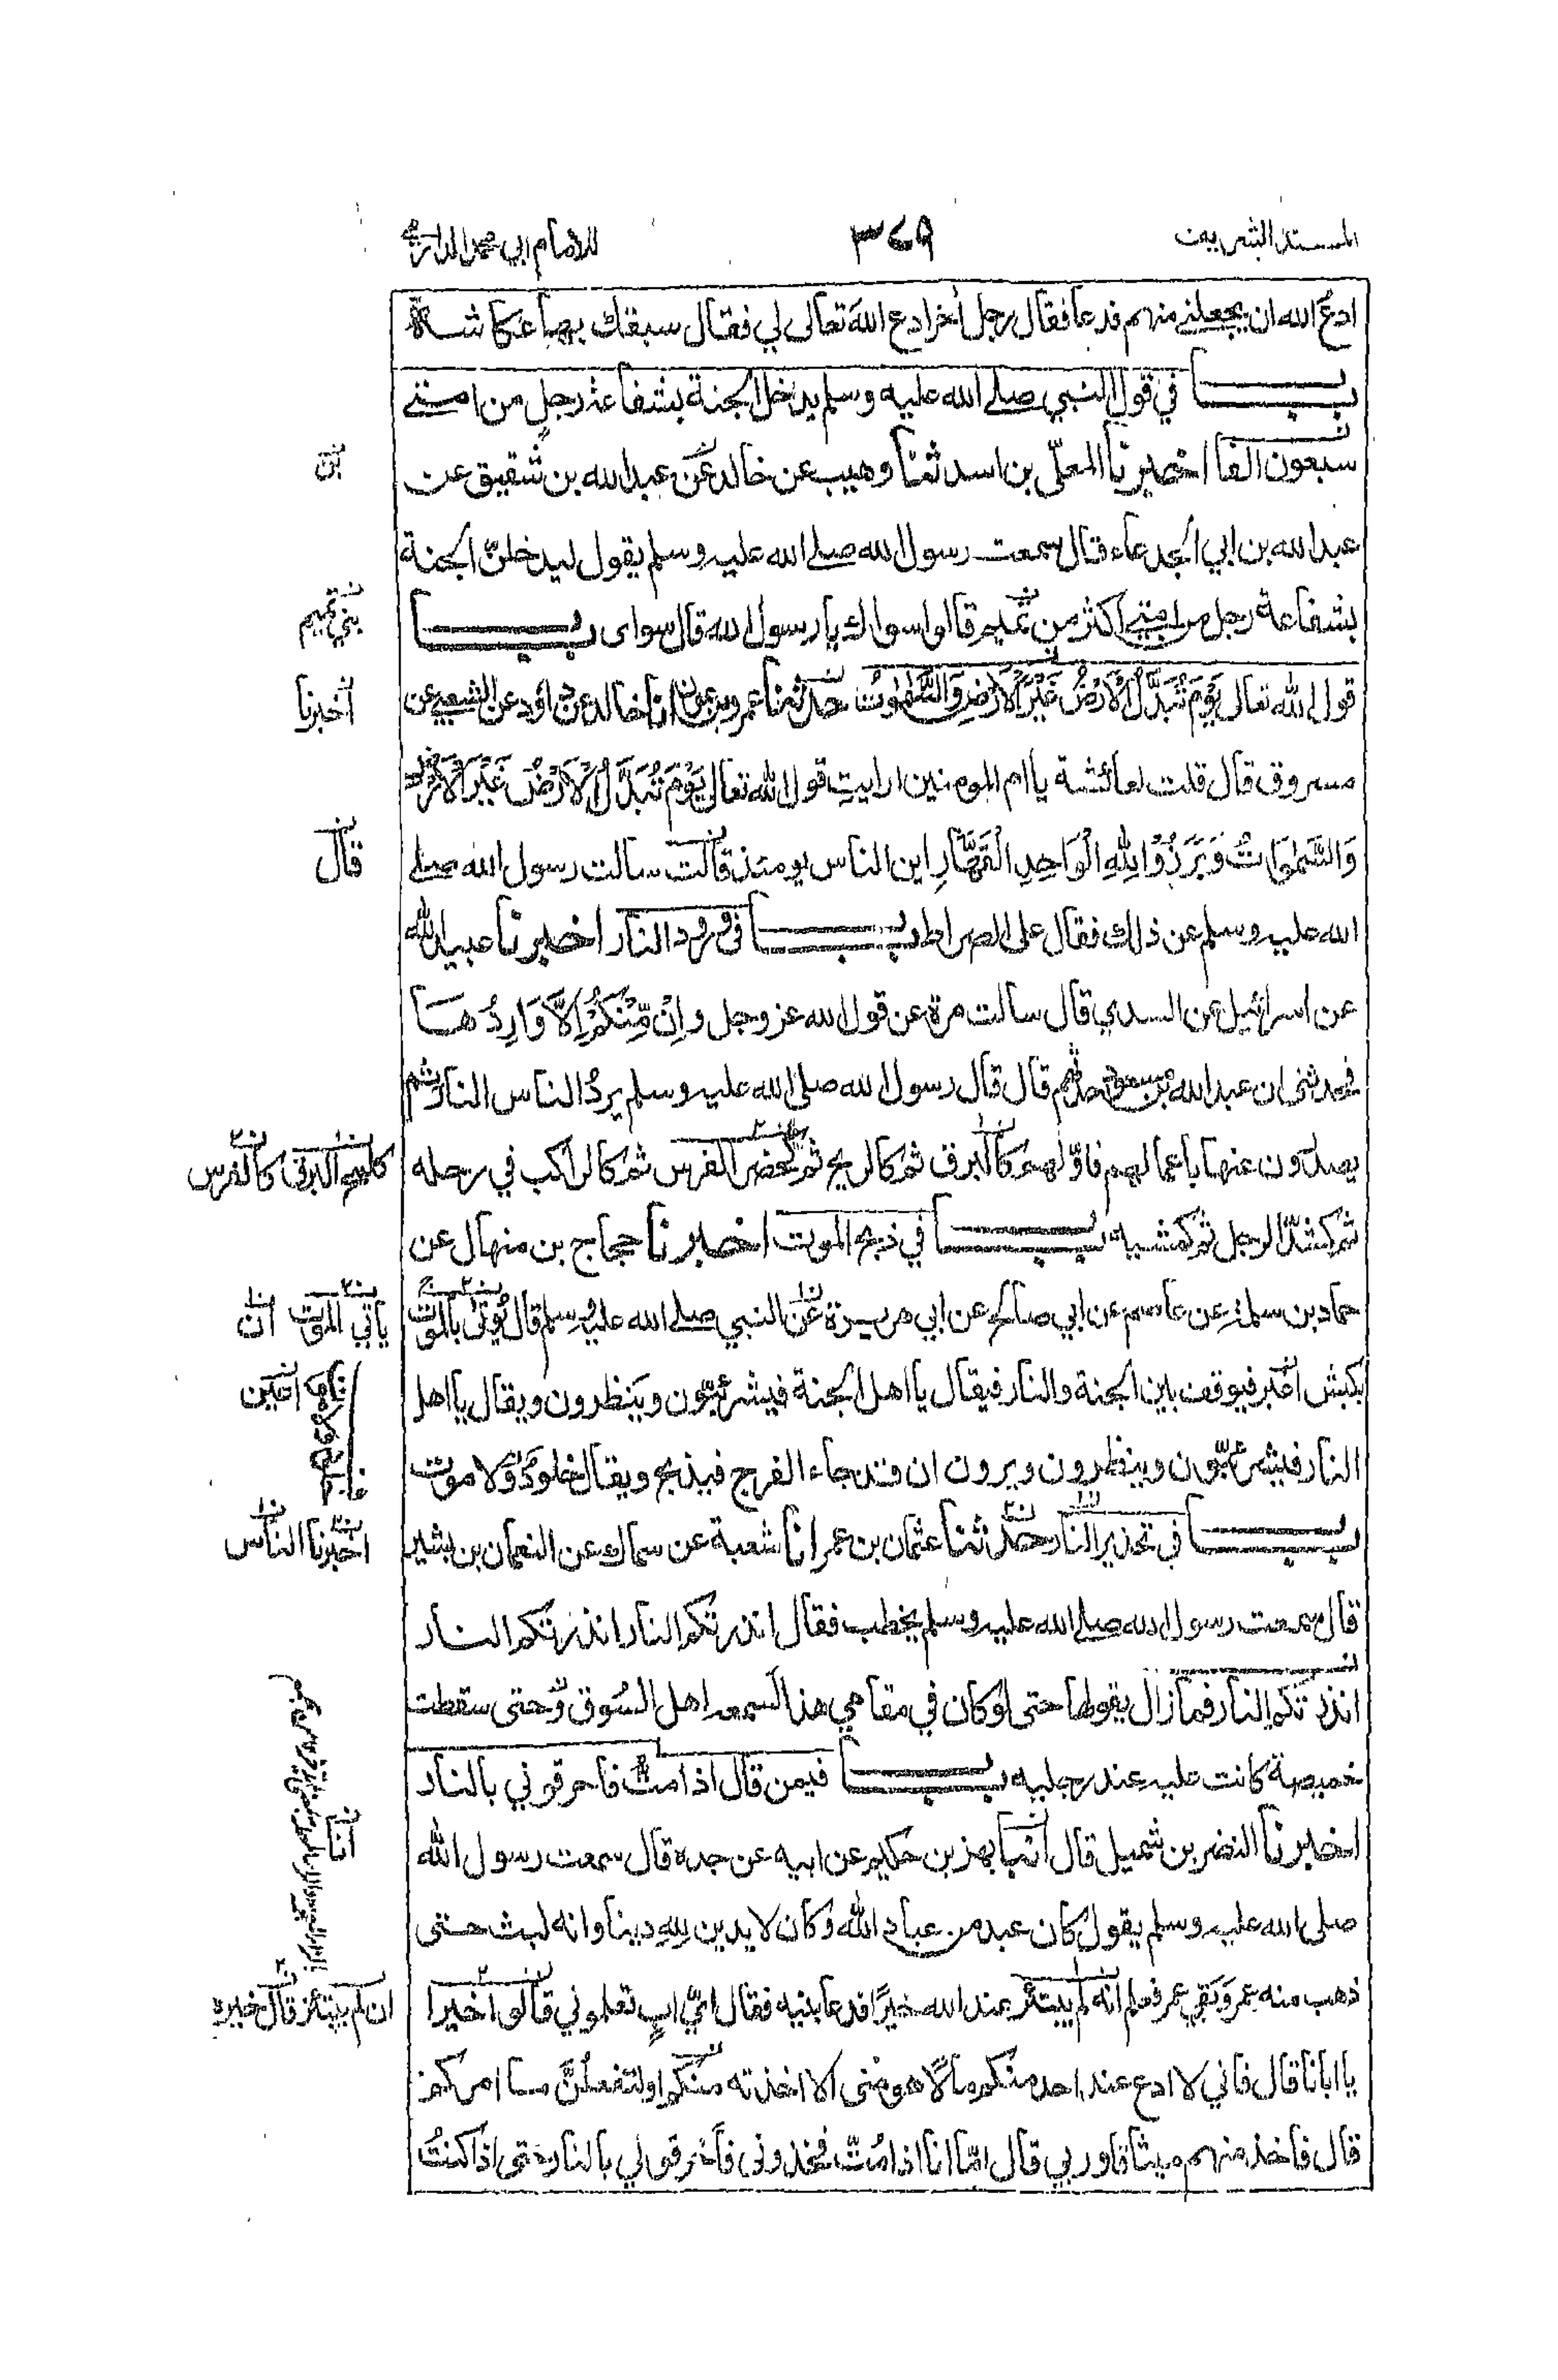 المسند الشريف
٣٤٩
للامام ابي محمد الدارمي
ادع الله ان يجعلني منهم فدعا فقال رجل أخر ادع الله تعالى لي فقال سبقك بها عكاشة
باب في قول النبي صلى الله عليه وسلم يدخل الجنة بشفاعة رجل من امتي
سبعون الفا اخبرنا المعلّى بن اسد ثنا وهيب عن خالد عن عبد الله بن شقيق عن
بن
عبد الله بن ابي الجدعاء قال سمعت رسول الله صلى الله عليه وسلم يقول ليدخلنّ الجنة
بشفاعة رجل من امتي اكثر من تميم قالوا سواك يا رسول الله قال سواى باب
بني تميم
قول الله تعالى يَوْمَ تُبَدَّلُ الْاَرْضُ غَيْرَ الْاَرْضِ وَالسَّمٰوٰتُ حدثنا عمرو بن عون انا خالد عن داؤد عن الشعبي عن
اخبرنا
مسروق قال قلت لعائشة يا ام المومنين ارايتِ قول الله تعالى يَوْمَ تُبَدَّلُ الْاَرْضُ غَيْرَ الْاَرْضِ
وَالسَّمٰوَاتُ وَبَرَزُوْا لِلّٰهِ الْوَاحِدِ الْقَهَّارِ اين الناس يومئذ قالت سالت رسول الله صلى
قال
الله عليه وسلم عن ذلك فقال على الصراط باب في ورود النار اخبرنا عبيد الله
عن اسرائيل عن السدي قال سالت مرة عن قول الله عز وجل وَاِنْ مِّنْكُمْ اِلَّا وَارِدُهَا
فحدثنى ان عبد الله بن مسعود حدثهم قال قال رسول الله صلى الله عليه وسلم يردُ الناس النار ثم
يصدرون عنها باعمالهم فاوّلهم كالبرق ثم كالريح ثم كحضر الفرس ثم كالراكب في رحله
كلمح البرق كالفرس
ثم كشدّ الرجل ثم كمشيه باب في ذبح الموت اخبرنا حجاج بن منهال عن
حماد بن سلمة عن عاصم عن ابي صالح عن ابي هريرة عن النبي صلى الله عليه وسلم قال يُؤتٰى بالموت
ياتي الموت ان
بكبش اغبر فيوقف بين الجنة والنار فيقال يا اهل الجنة فيشرئبّون وينظرون ويقال يا اهل
النار فيشرئبّون وينظرون ويرون ان قد جاء الفرج فيذبح ويقال خلودٌ ولا موت
باب في تحذير النار حدثنا عثمان بن عمر انا شعبة عن سماك عن النعمان بن بشير
اخبرنا الناس
قال سمعت رسول الله صلى الله عليه وسلم يخطب فقال انذرتكم النار انذرتكم النار
انذرتكم النار فما زال يقولها حتى لو كان في مقامي هذا لسمعه اهل السُوق وحتى سقطت
خميصة كانت عليه عند رجليه باب فيمن قال اذا متُّ فاحرقوني بالنار
اخبرنا النضر بن شميل قال انبا بهز بن حكيم عن ابيه عن جده قال سمعت رسول الله
انا
صلى الله عليه وسلم يقول كان عبد من عباد الله وكان لا يدين لِلّٰهِ دينا وانه لبث حتى
ذهب منه عمر وَبَقِي عمر فعلم انه لم يبتئر عند الله خيرًا فدعا بنيه فقال ايّ ابٍ تعلموني قالوا خيرا
ان لم يبتئر قال خيره
يا ابانا قال فاني لا ادع عند احد منكم مالًا هو منى الا اخذته منكم او لتفعلُنَّ ما امركم
قال فاخذ منهم ميثاقا وربي قال امّا انا اذا مُتّ فخذوني فاحرقوني بالنار حتى اذا كنتُ